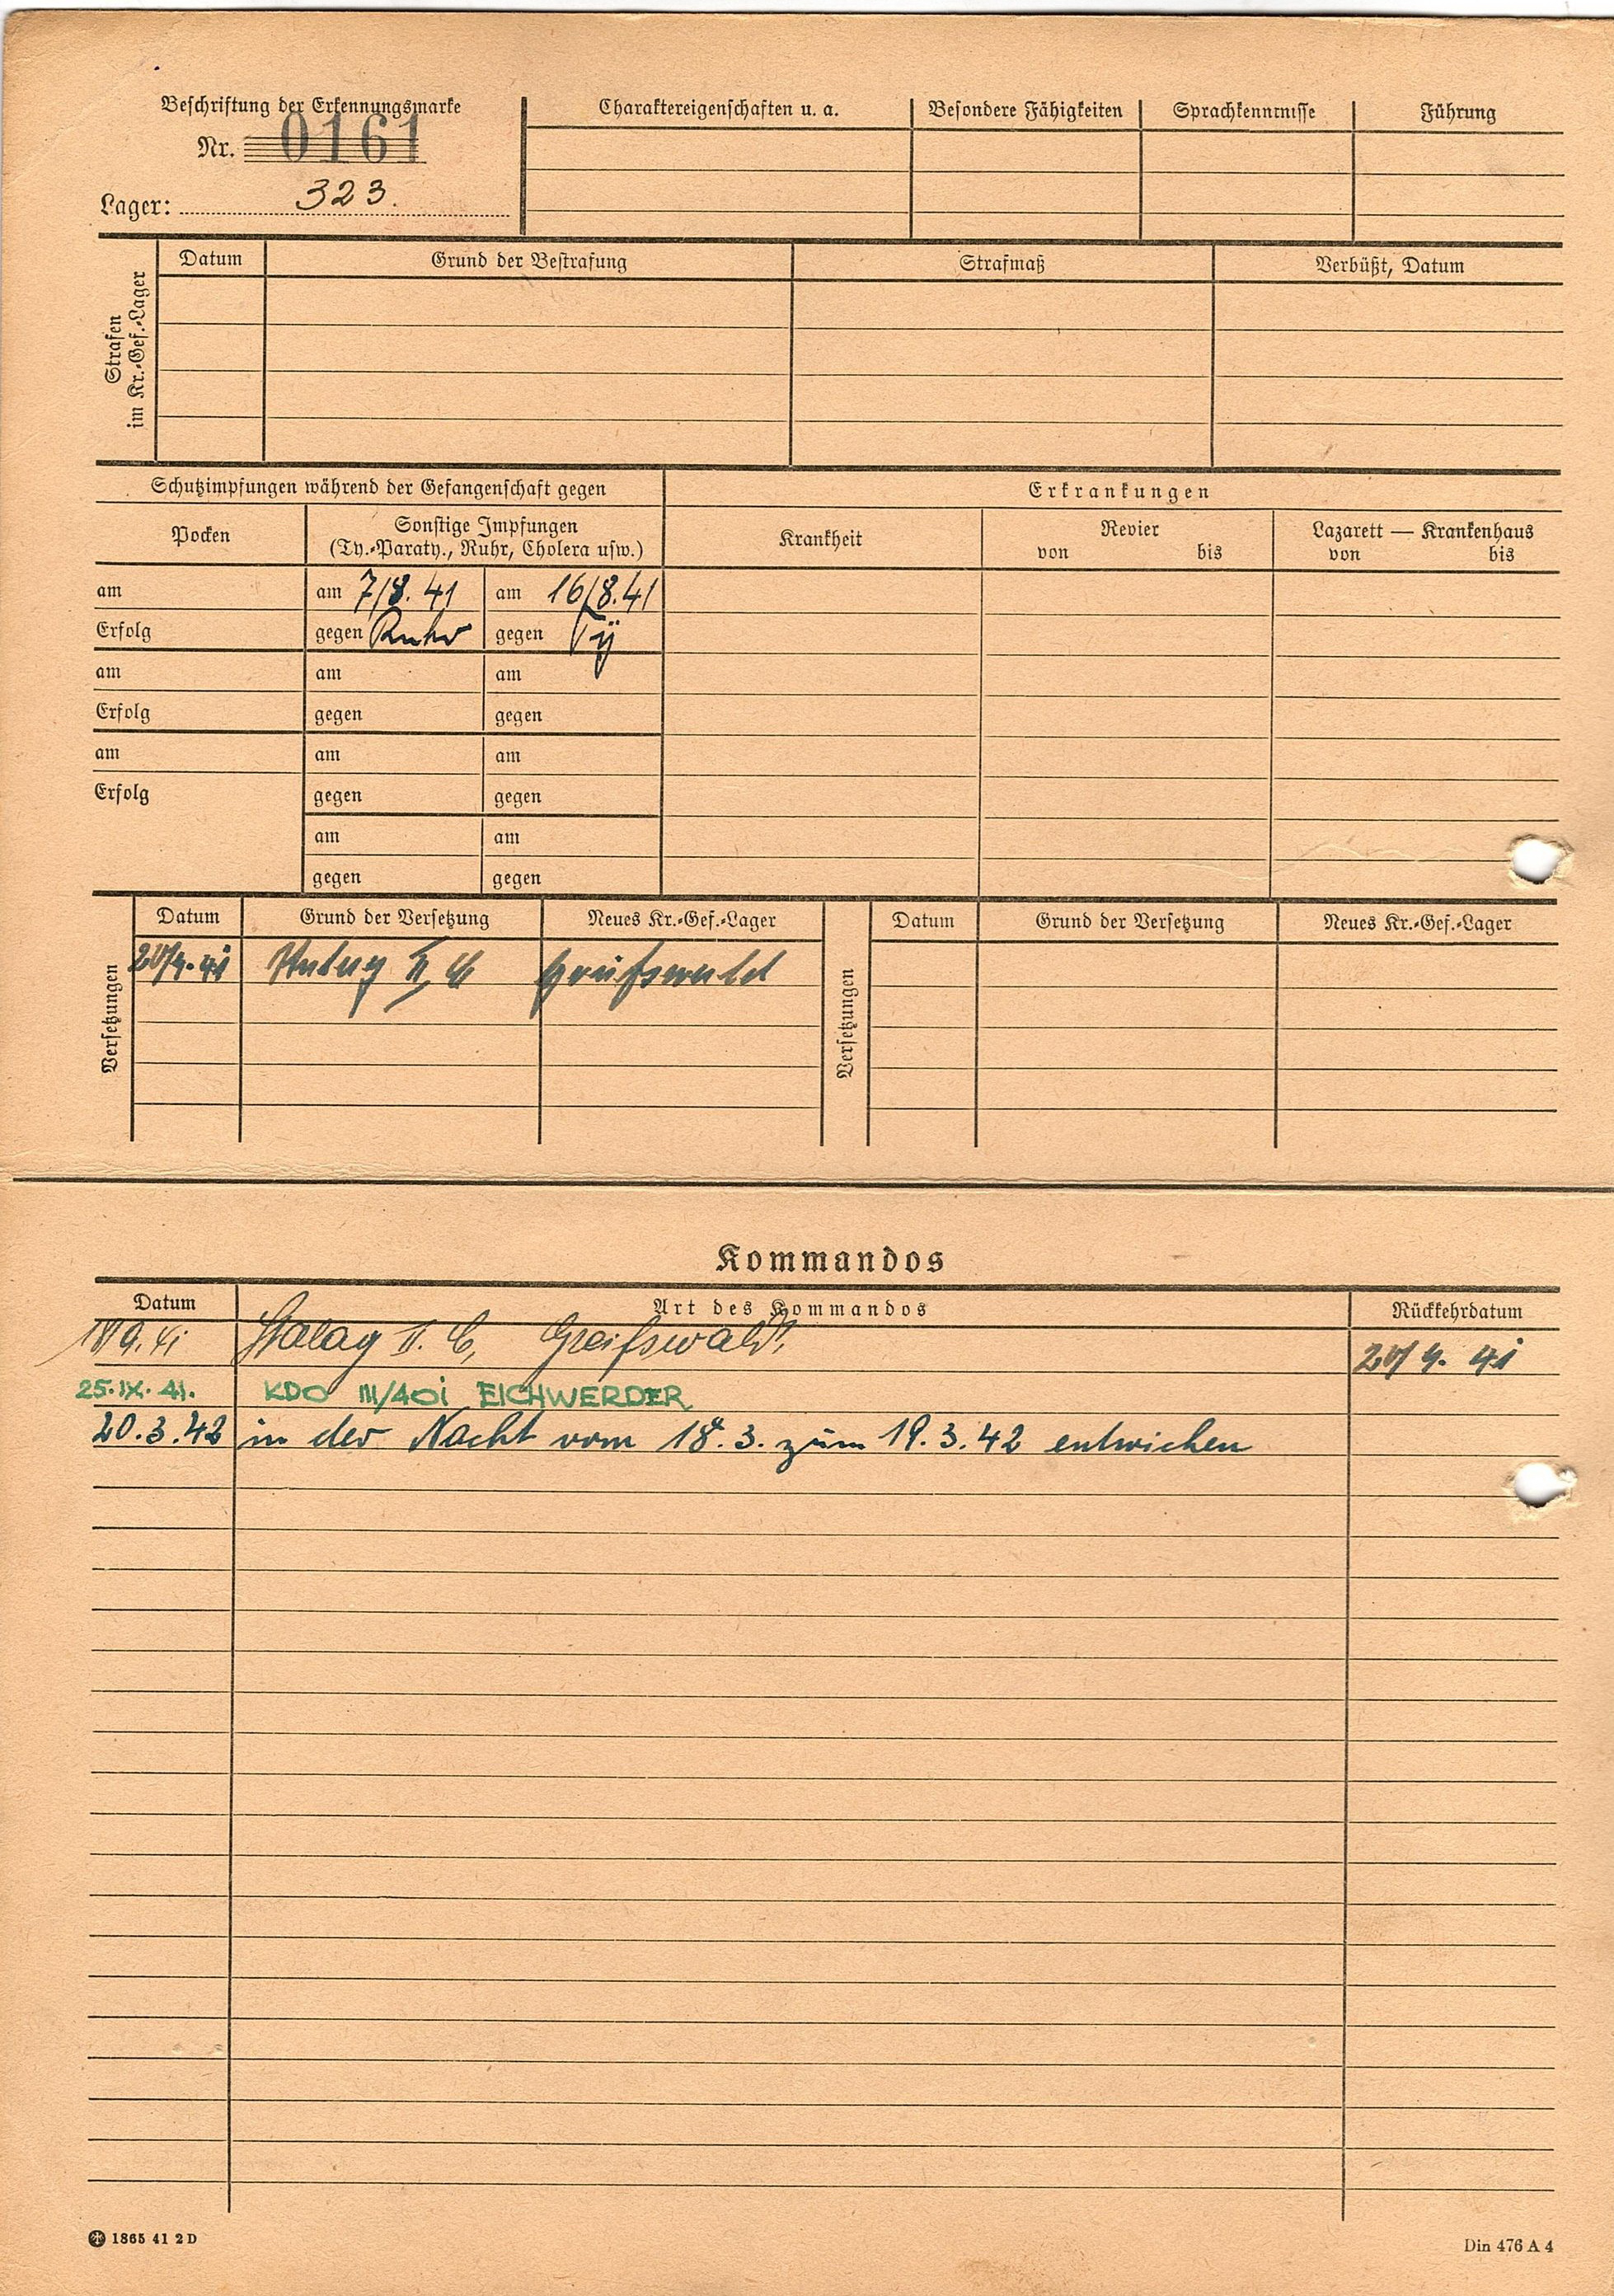 Beschriftung der Erkennungsmarke
Nr. 0161
Lager: 323.
Charaktereigenschaften u. a.
Besondere Fähigkeiten
Sprachkenntnisse
Führung
Strafen
im Kr.-Gef.-Lager
Datum
Grund der Bestrafung
Strafmaß
Verbüßt, Datum
Schutzimpfungen während der Gefangenschaft gegen
Erkrankungen
Pocken
Sonstige Impfungen
(Ty.-Paraty., Ruhr, Cholera usw.)
Krankheit
Revier
von bis
Lazarett — Krankenhaus
von bis
am
am 7/8. 41
am 16/8.41
Erfolg
gegen Ruhr
gegen Ty
am
am
am
Erfolg
gegen
gegen
am
am
am
Erfolg
gegen
gegen
am
am
gegen
gegen
Versetzungen
Datum
Grund der Versetzung
Neues Kr.-Gef.-Lager
Versetzungen
Datum
Grund der Versetzung
Neues Kr.-Gef.-Lager
II C Greifswald
Kommandos
Datum
Art des Kommandos
Rückkehrdatum
Stalag II. C, Greifswald.
25.IX.41. KDO III/401 EICHWERDER
20.3.42 in der Nacht vom 18.3. zum 19.3.42 entwichen
1865 41 2 D
Din 476 A 4